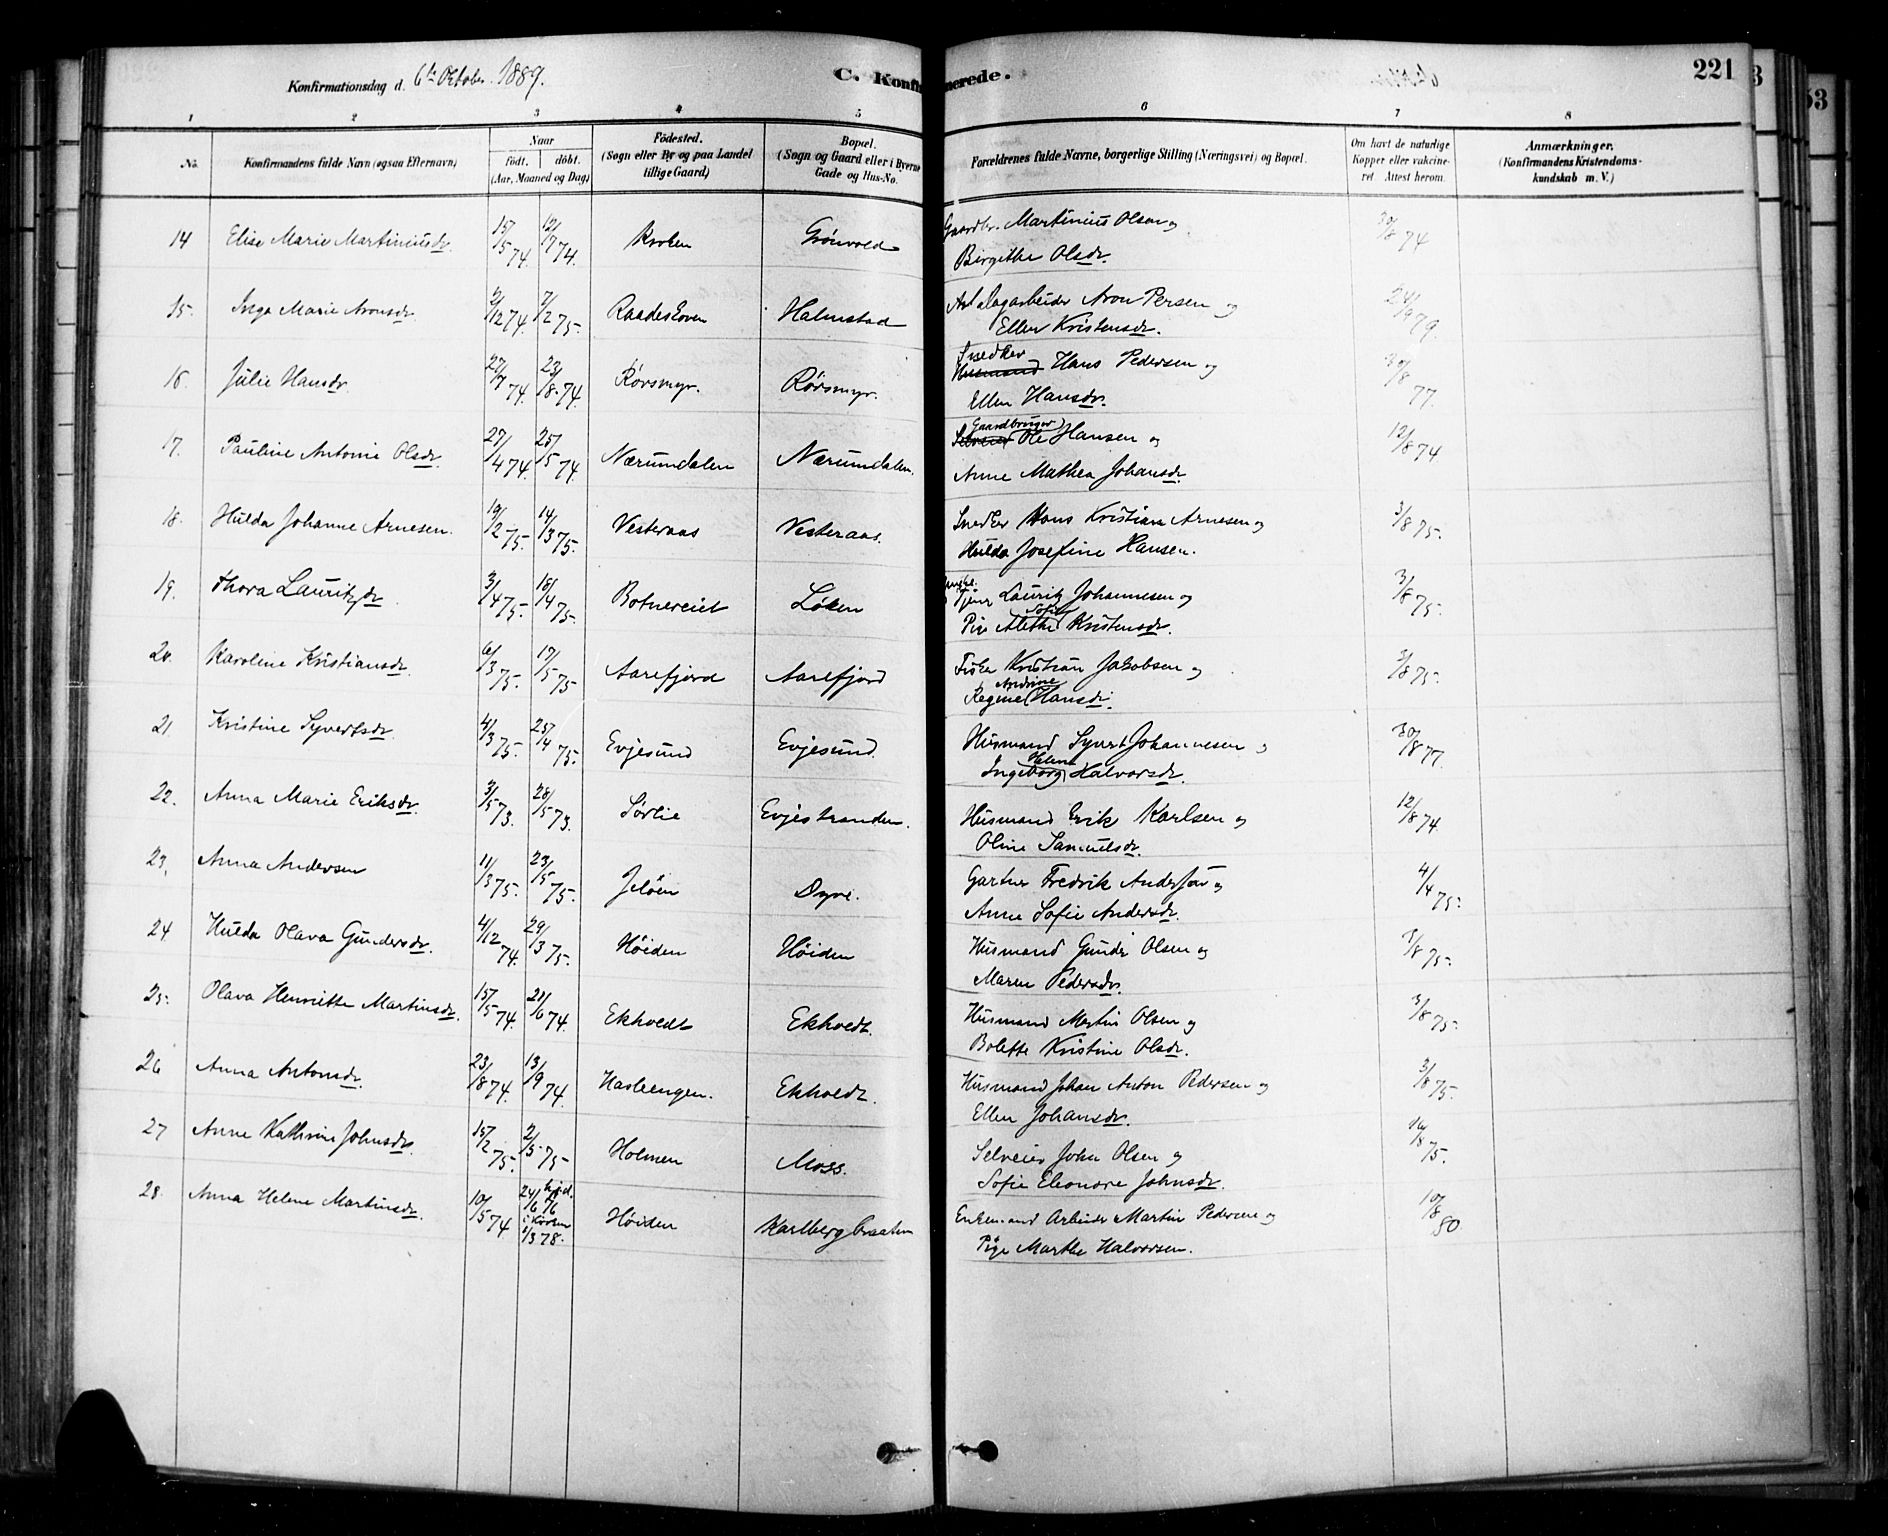 221
Konfirmationsdag d. 6te October 1889.
C. Konfirmerede.
1 2 3 4 5 6 7 8
No. Konfirmandens fulde Navn (ogsaa Efternavn) Naar født. døbt. (Aar, Maaned og Dag) Födested. (Sogn eller By og paa Landet tillige Gaard) Bopæl. (Sogn og Gaard eller i Byerne Gade og Hus-No. Forældrenes fulde Navne, borgerlige Stilling (Næringsvei) og Bopæl. Om havt de naturlige Kopper eller vakcineret Attest herom. Anmærkninger. (Konfirmandens Kristendomskundskab m. V.)
14 Elise Marie Martiniusdr. 15/5 74. 12/7 74. Kroken Grönvold Gaardbr. Martinius Olsen og 30/8 74
Birgithe Olsdr.
15. Inga Marie Aronsdr. 2/12 74. 7/2 75. Raadeskoven Halmstad Arbeider Aron Persen og 24/9 79.
Ellen Kristensdr.
16. Julie Hansdr. 27/7 74. 23/8 74. Rörsmyr. Rörsmyr. Snedker Husmand Hans Pedersen og 30/8 77.
Ellen Hansdr.
17. Pauline Antonie Olsdr. 27/4 74. 25/5 74. Nærumdalen Nærumdalen. Gaardbruger Selveier Ole Hansen og 12/8 74
Anne Mathea Johansdr.
18. Hulda Johanne Arnesen. 19/2 75. 14/3 75. Vesteraas Vesteraas. Snedker Hans Kristian Arnesen og 3/8 75.
Hulda Josefine Hansen.
19. Thora Lauritzdr. 3/4 75. 18/4 75. Botnereiet Löken Ungkl. Tjener Lauritz Johannesen og 3/8 75.
Pige Alethe Sofie Kristensdr.
20. Karoline Kristiansdr. 6/3 75. 17/5 75 Aarefjord Aarefjord Fisker Kristian Jakobsen og 3/8 75.
Regine Andrine Hansdr.
21. Kristine Syvertsdr. 4/3 75. 25/4 75. Evjesund Evjesund. Husmand Syvert Johannesen og 30/8 77.
Ingeborg Helene Halvorsdr.
22. Anna Marie Eriksdr. 3/5 73. 28/5 73. Sörlie Evjestranden. Husmand Erik Karlsen og 12/8 74.
Oline Samuelsdr.
23. Anna Andersen 11/3 75. 23/5 75. Jelöen Dyre. Gartner Fredrik Andersen og 4/4 75.
Anne Sofie Andersdr.
24 Hulda Olava Gundersdr. 4/12 74. 29/3 75. Höiden Höiden Husmand Gunder Olsen og 3/8 75.
Maren Pedersdr.
25. Olava Henriette Martinsdr. 15/5 74. 21/6 74. Ekholdt Ekholdt. Husmand Martin Olsen og 3/8 75.
Bolette Kristine Olsdr.
26 Anna Antonsdr. 23/8 74. 13/9 74. Hasleengen. Ekholdt. Husmand Johan Anton Pedersen og 3/8 75.
Ellen Johansdr.
27 Anne Kathrine Johnsdr. 15/2 75. 2/5 75 Holmen Moss. Selveier John Olsen og 16/8 75.
Sofie Eleonore Johnsdr.
28. Anna Helene Martinsdr. 10/5 74 24/6 76 hjd. i Kirken 1/3 78. Höiden Karlbergbraaten Enkemand Arbeider Martin Pedersen og 10/8 80
Pige Marthe Halvorsen.